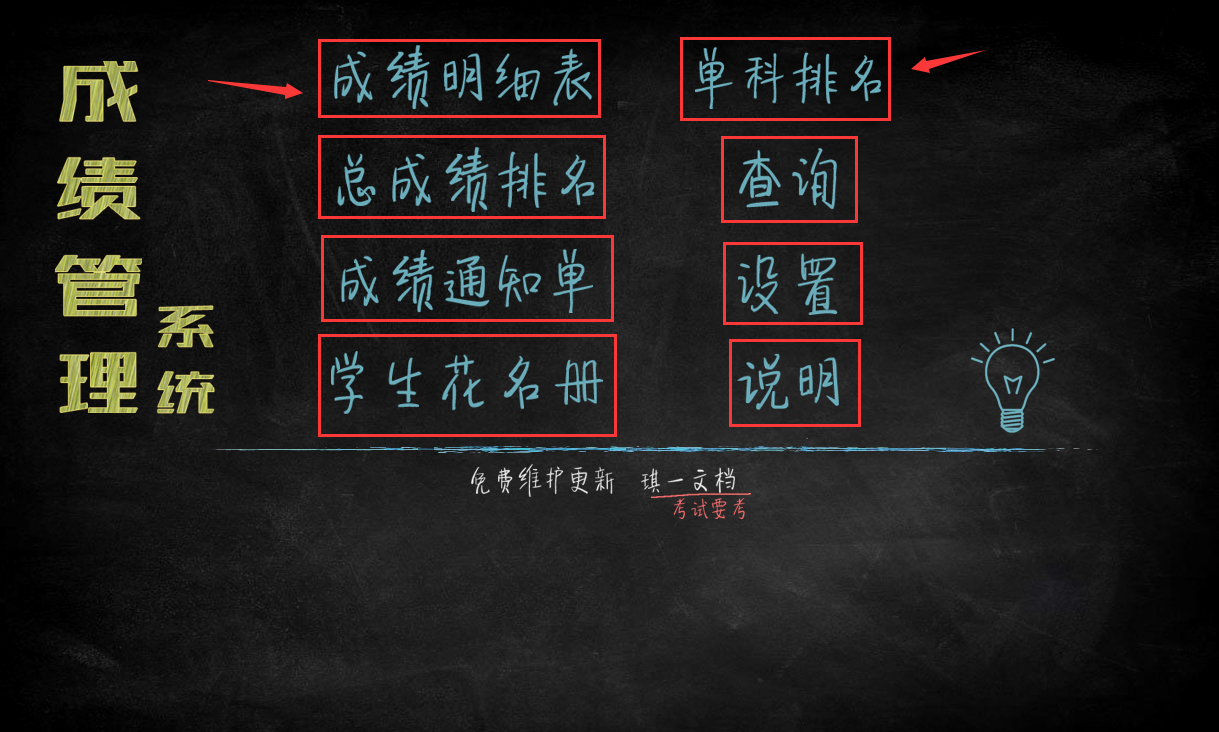 成绩管理
系统
成绩明细表
单科排名
总成绩排名
查询
成绩通知单
设置
学生花名册
说明
免费维护更新 琪一文档
考试要考